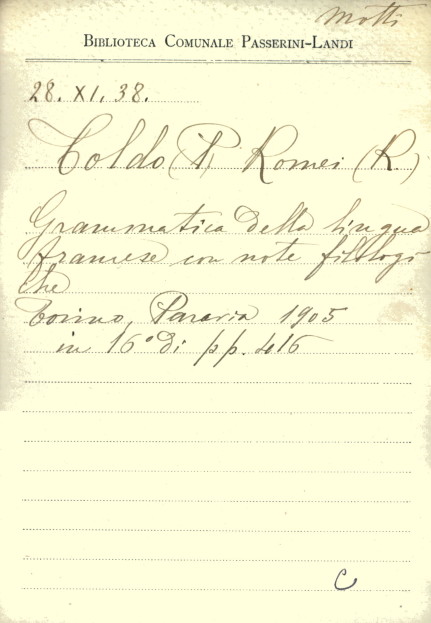 Motti
BIBLIOTECA COMUNALE PASSERINI-LANDI
28. XI. 38.
Toldo (P) Romei (R.)
Grammatica della lingua
francese con note filologi
che
Torino, Paravia 1905
in 16° di pp. 416
C